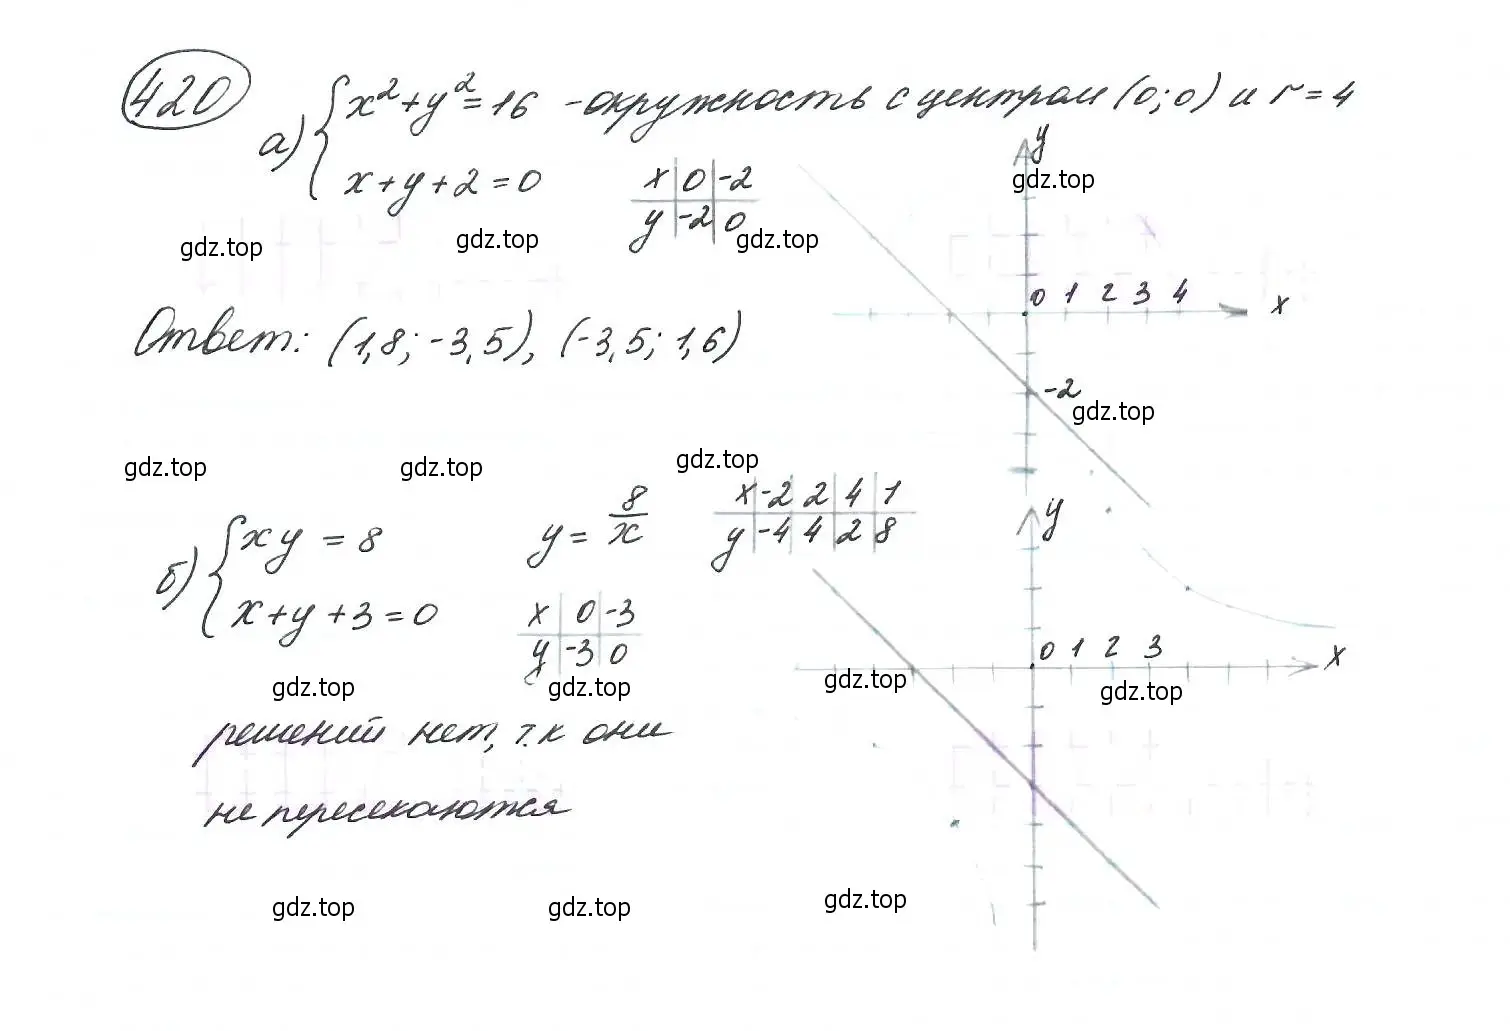 420
а) { x² + y² = 16 - окружность с центром (0; 0) и r = 4
x + y + 2 = 0
x | 0 | -2
y | -2 | 0
y
gdz.top
gdz.top gdz.top gdz.top
0 1 2 3 4 x
-2
gdz.top
Ответ: (1,8; -3,5), (-3,5; 1,6)
gdz.top gdz.top gdz.top
б) { xy = 8
y = 8/x
x | -2 | 2 | 4 | 1
y | -4 | 4 | 2 | 8
y
x + y + 3 = 0
x | 0 | -3
y | -3 | 0
0 1 2 3 x
gdz.top gdz.top gdz.top gdz.top
решений нет, т.к они
не пересекаются
gdz.top gdz.top gdz.top